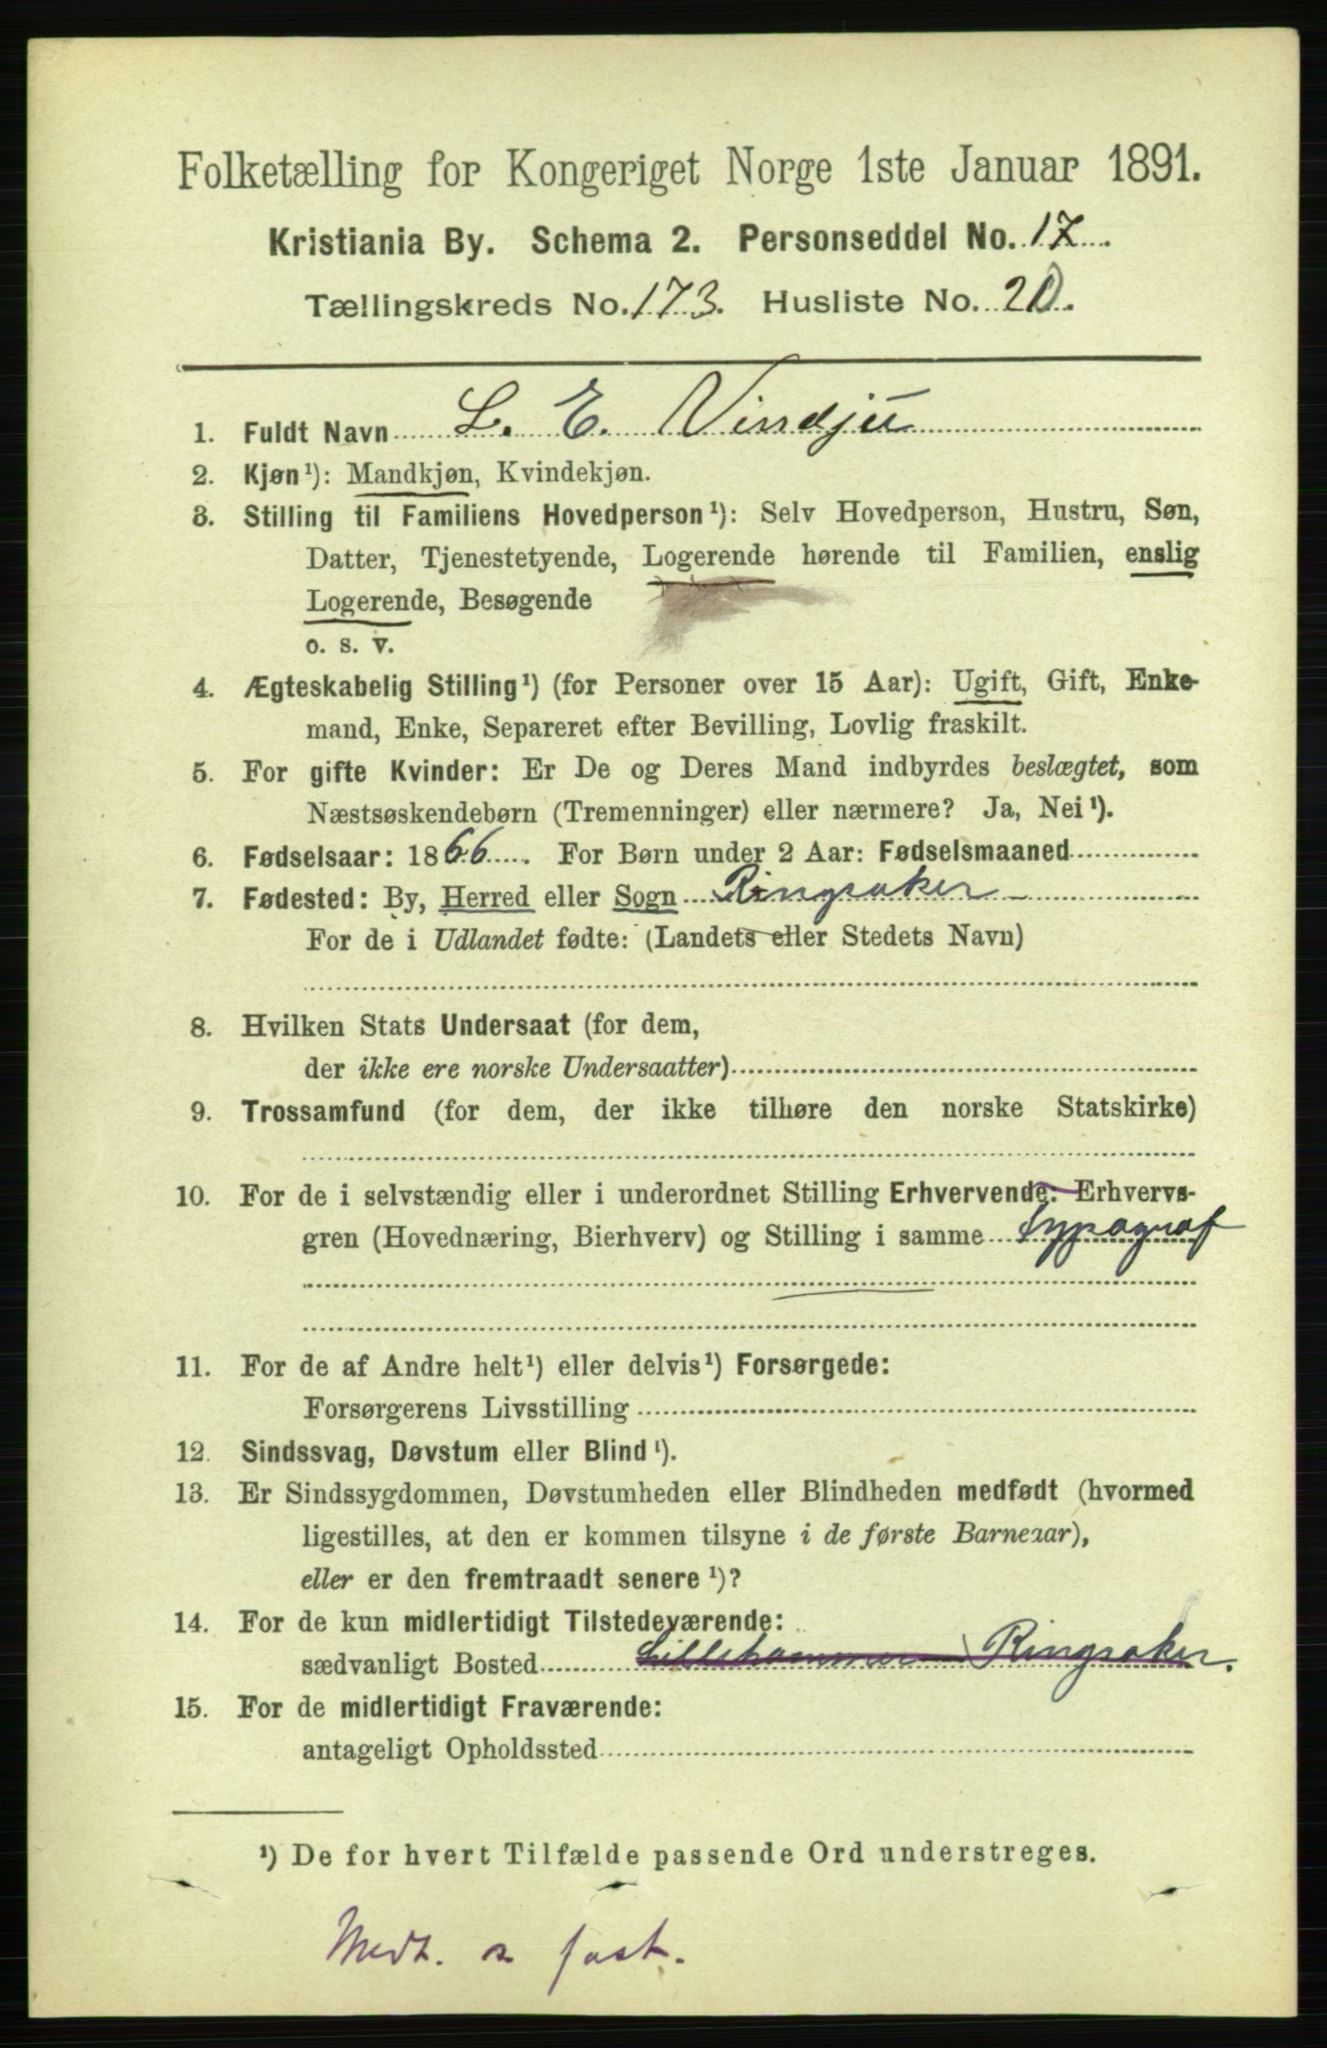 Folketælling for Kongeriget Norge 1ste Januar 1891.
Kristiania By. Schema 2. Personseddel No. 17
Tællingskreds No. 173. Husliste No. 20.
1. Fuldt Navn L. E. Vindju
2. Kjøn¹): Mandkjøn, Kvindekjøn.
3. Stilling til Familiens Hovedperson¹): Selv Hovedperson, Hustru, Søn,
Datter, Tjenestetyende, Logerende hørende til Familien, enslig
Logerende, Besøgende
o. s. v.
4. Ægteskabelig Stilling¹) (for Personer over 15 Aar): Ugift, Gift, Enke-
mand, Enke, Separeret efter Bevilling, Lovlig fraskilt.
5. For gifte Kvinder: Er De og Deres Mand indbyrdes beslægtet, som
Næstsøskendebørn (Tremenninger) eller nærmere? Ja, Nei¹).
6. Fødselsaar: 1866. For Børn under 2 Aar: Fødselsmaaned
7. Fødested: By, Herred eller Sogn Ringsaker
For de i Udlandet fødte: (Landets eller Stedets Navn)
8. Hvilken Stats Undersaat (for dem,
der ikke ere norske Undersaatter)
9. Trossamfund (for dem, der ikke tilhøre den norske Statskirke)
10. For de i selvstændig eller i underordnet Stilling Erhvervende: Erhvervs-
gren (Hovednæring, Bierhverv) og Stilling i samme Typograf
11. For de af Andre helt¹) eller delvis¹) Forsørgede:
Forsørgerens Livsstilling
12. Sindssvag, Døvstum eller Blind¹).
13. Er Sindssygdommen, Døvstumheden eller Blindheden medfødt (hvormed
ligestilles, at den er kommen tilsyne i de første Barneaar),
eller er den fremtraadt senere¹)?
14. For de kun midlertidigt Tilstedeværende:
sædvanligt Bosted Lillehammer Ringsaker.
15. For de midlertidigt Fraværende:
antageligt Opholdssted
¹) De for hvert Tilfælde passende Ord understreges.
Medt. s fast.